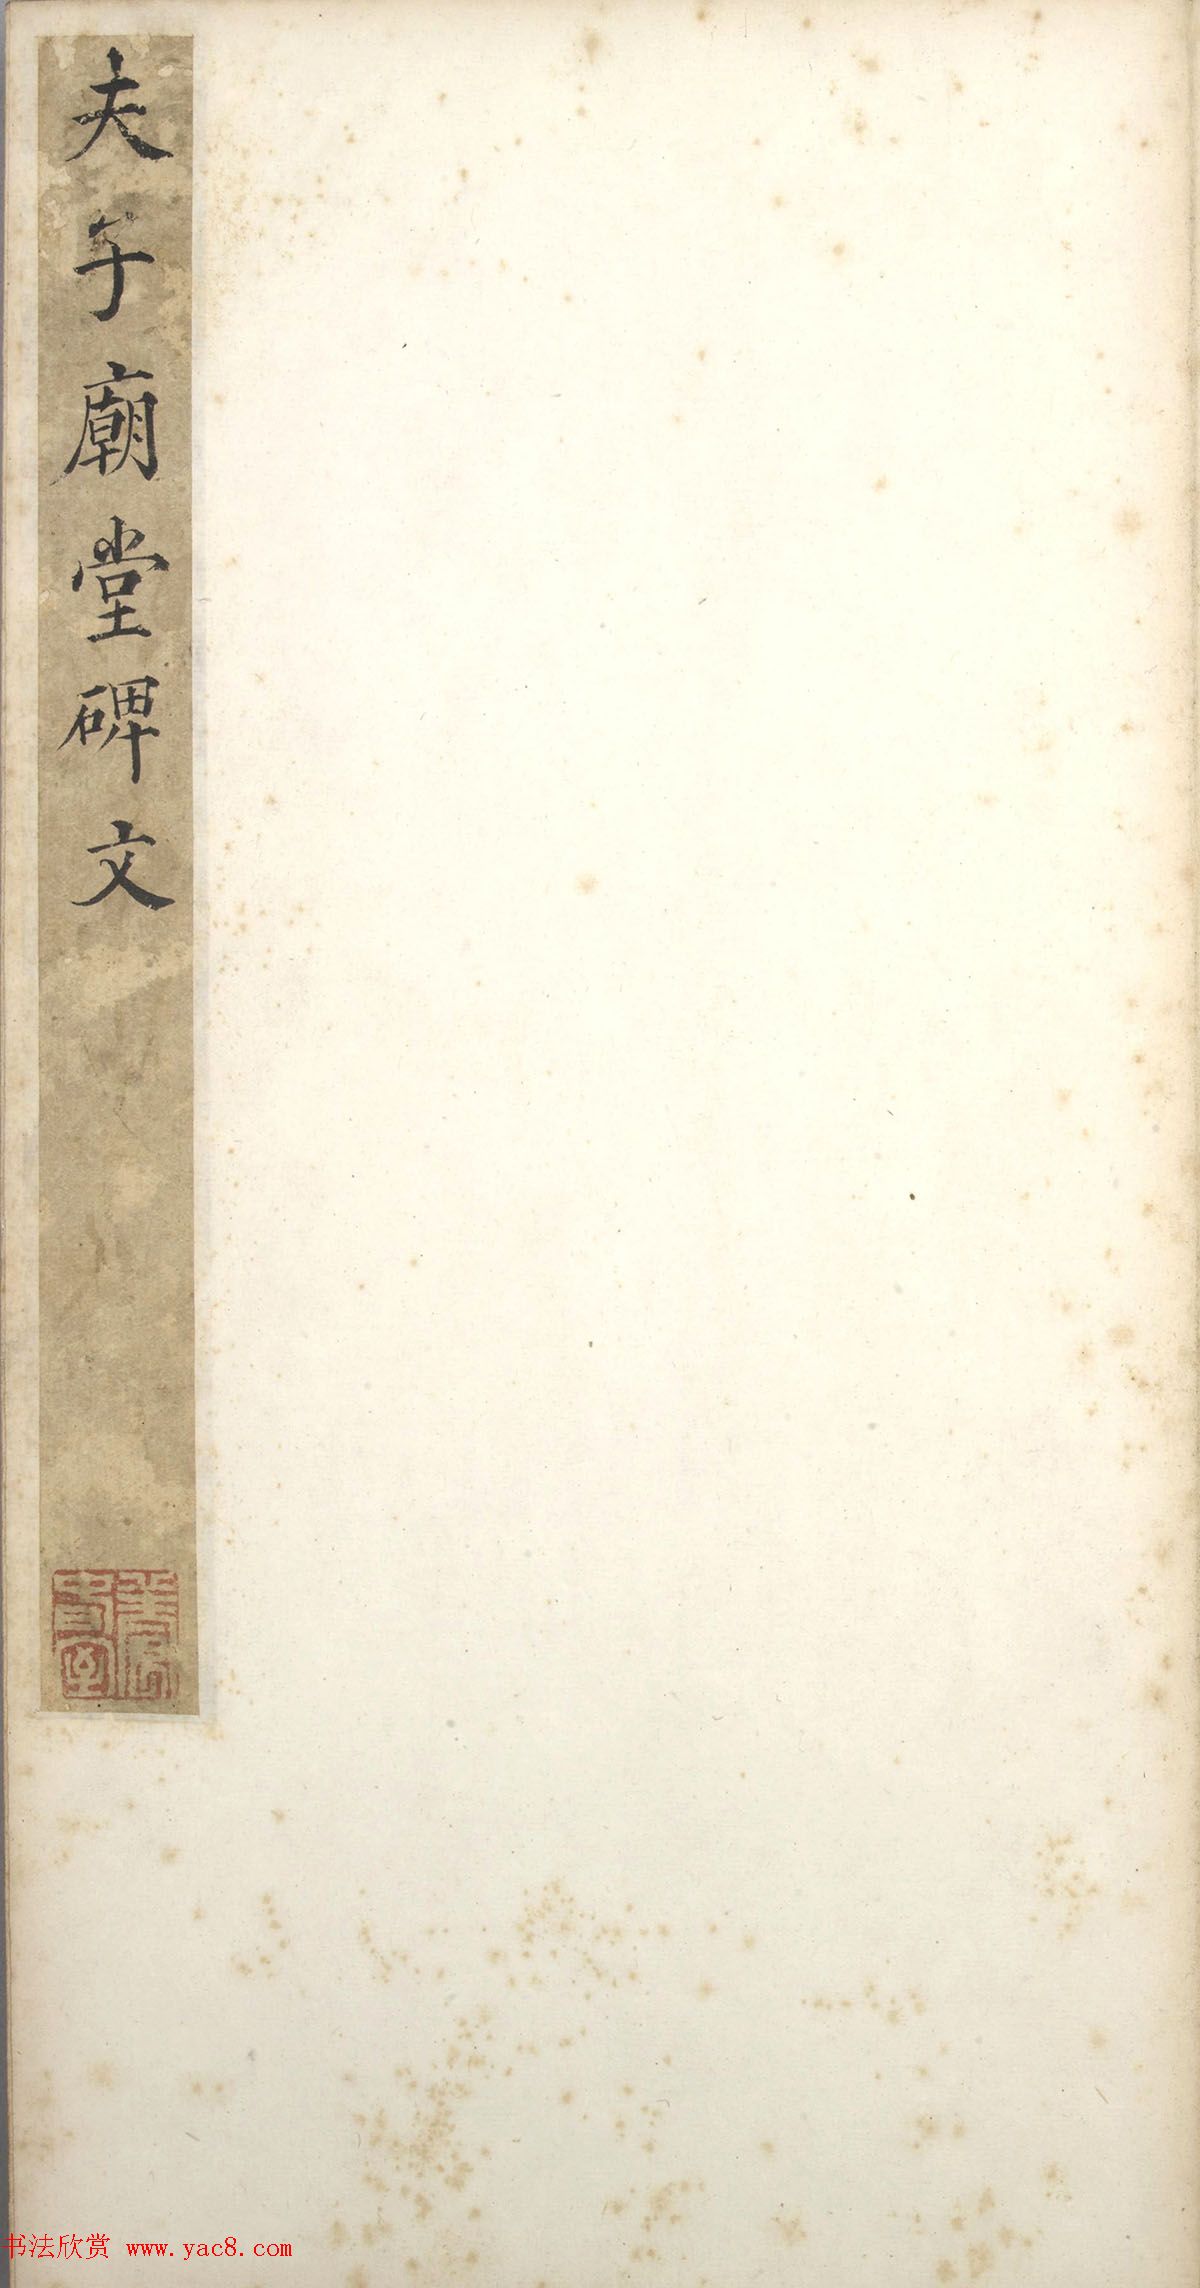 夫子廟堂碑文
书法欣赏 www.yac8.com